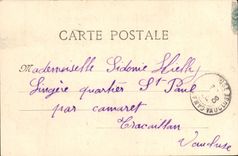 CARTE POSTALE
Mademoiselle Sidonie
Lingère quartier St Paul
par camaret
Travaillan
Vaucluse